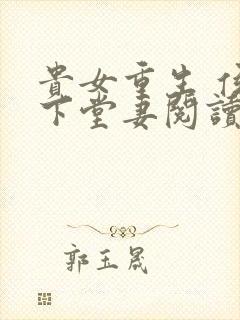 貴女重生 侯
下堂妻閱讀
郭玉晟